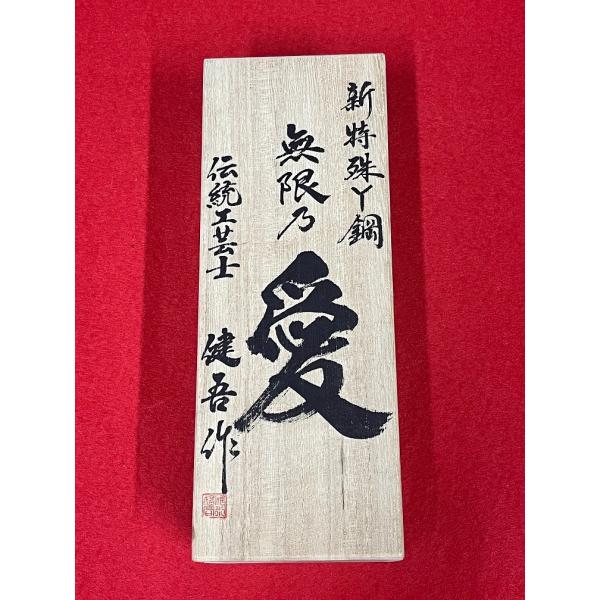 新特殊Y鋼
無限乃
愛
伝統工芸士
健吾作